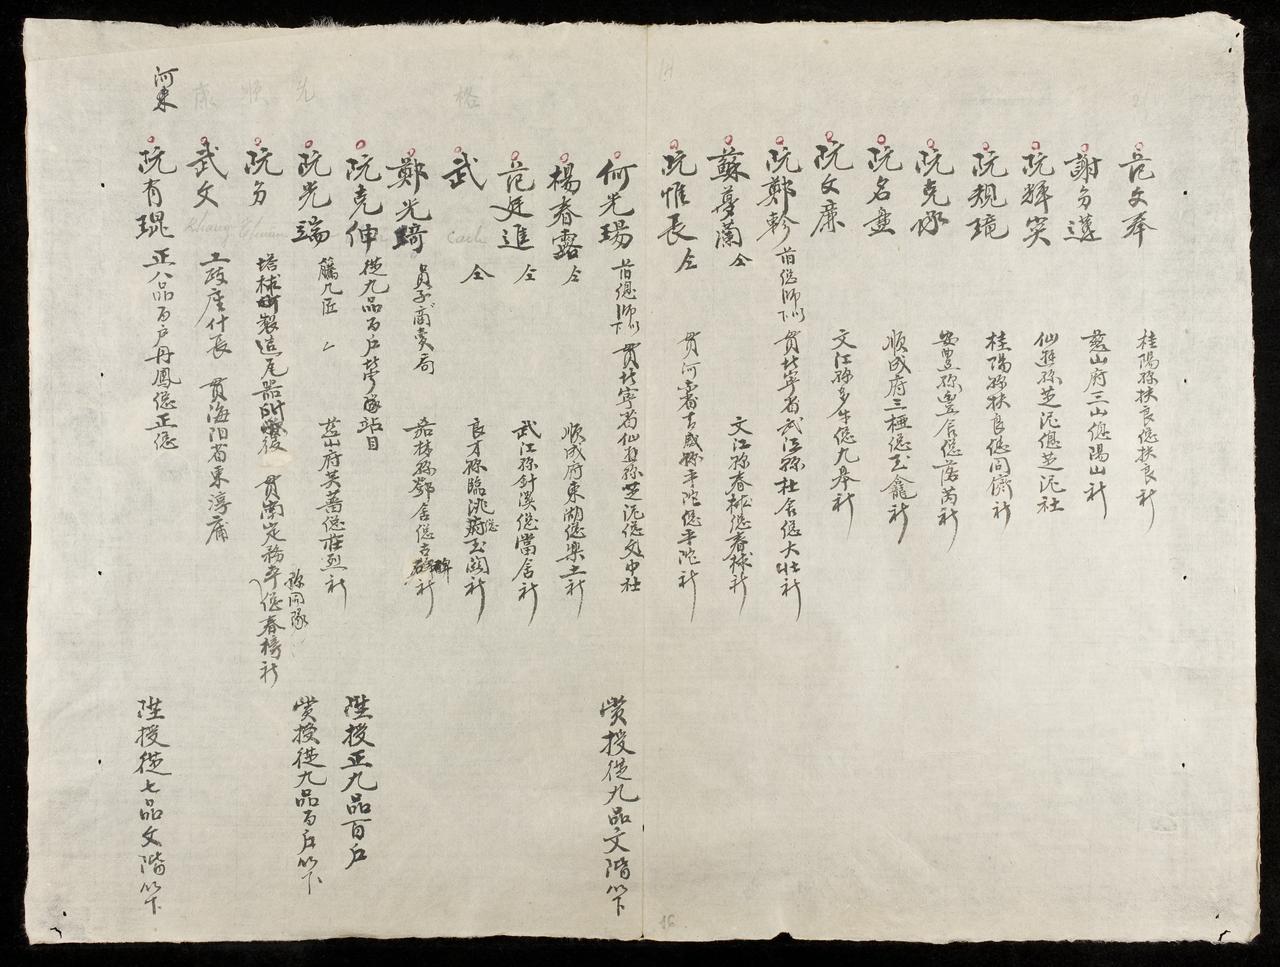 范文奉 桂陽縣扶良總扶良社
謝多遵 慈山府三山總陽山社
阮輝突 仙遊縣芝泥總芝泥社
阮規境 桂陽縣扶良總同儕社
阮克承 安豊縣豊舍總落芮社
阮名盡 順成府三極總玉龕社
阮文廉 文江縣多牛總九皋社
阮鄭軫 前總師以下 貫北寧省武江縣杜舍總大壯社
蘇導蘭 仝 文江縣春林總春林社
阮惟長 仝 貫河東省青威縣平陀總平陀社
何光瑒 前總師以下 貫北寧省仙遊縣芝泥總文中社 賞授從九品文階以下
楊春露 仝 順成府東湖總樂土社
范廷進 仝 武江縣針溪總當舍社
武 仝 良才縣臨洮總玉關社
格
Cach
鄭光琦 員子商賣局 嘉林縣鄧舍總古社
阮克伸 從九品百戶隊站目 陞授正九品百戶
阮光端 籐几匠 慈山府芙薔總莊烈社 賞授從九品百戶以下
光
阮多 塔球製造瓦器 貫南定務本縣同隊總春榜社
順
Thuan
武文 工政座什長 貫海陽省東淳庯
康
Khang
河東
阮有琨 正八品百戶丹鳳總正總 陞授從七品文階以下